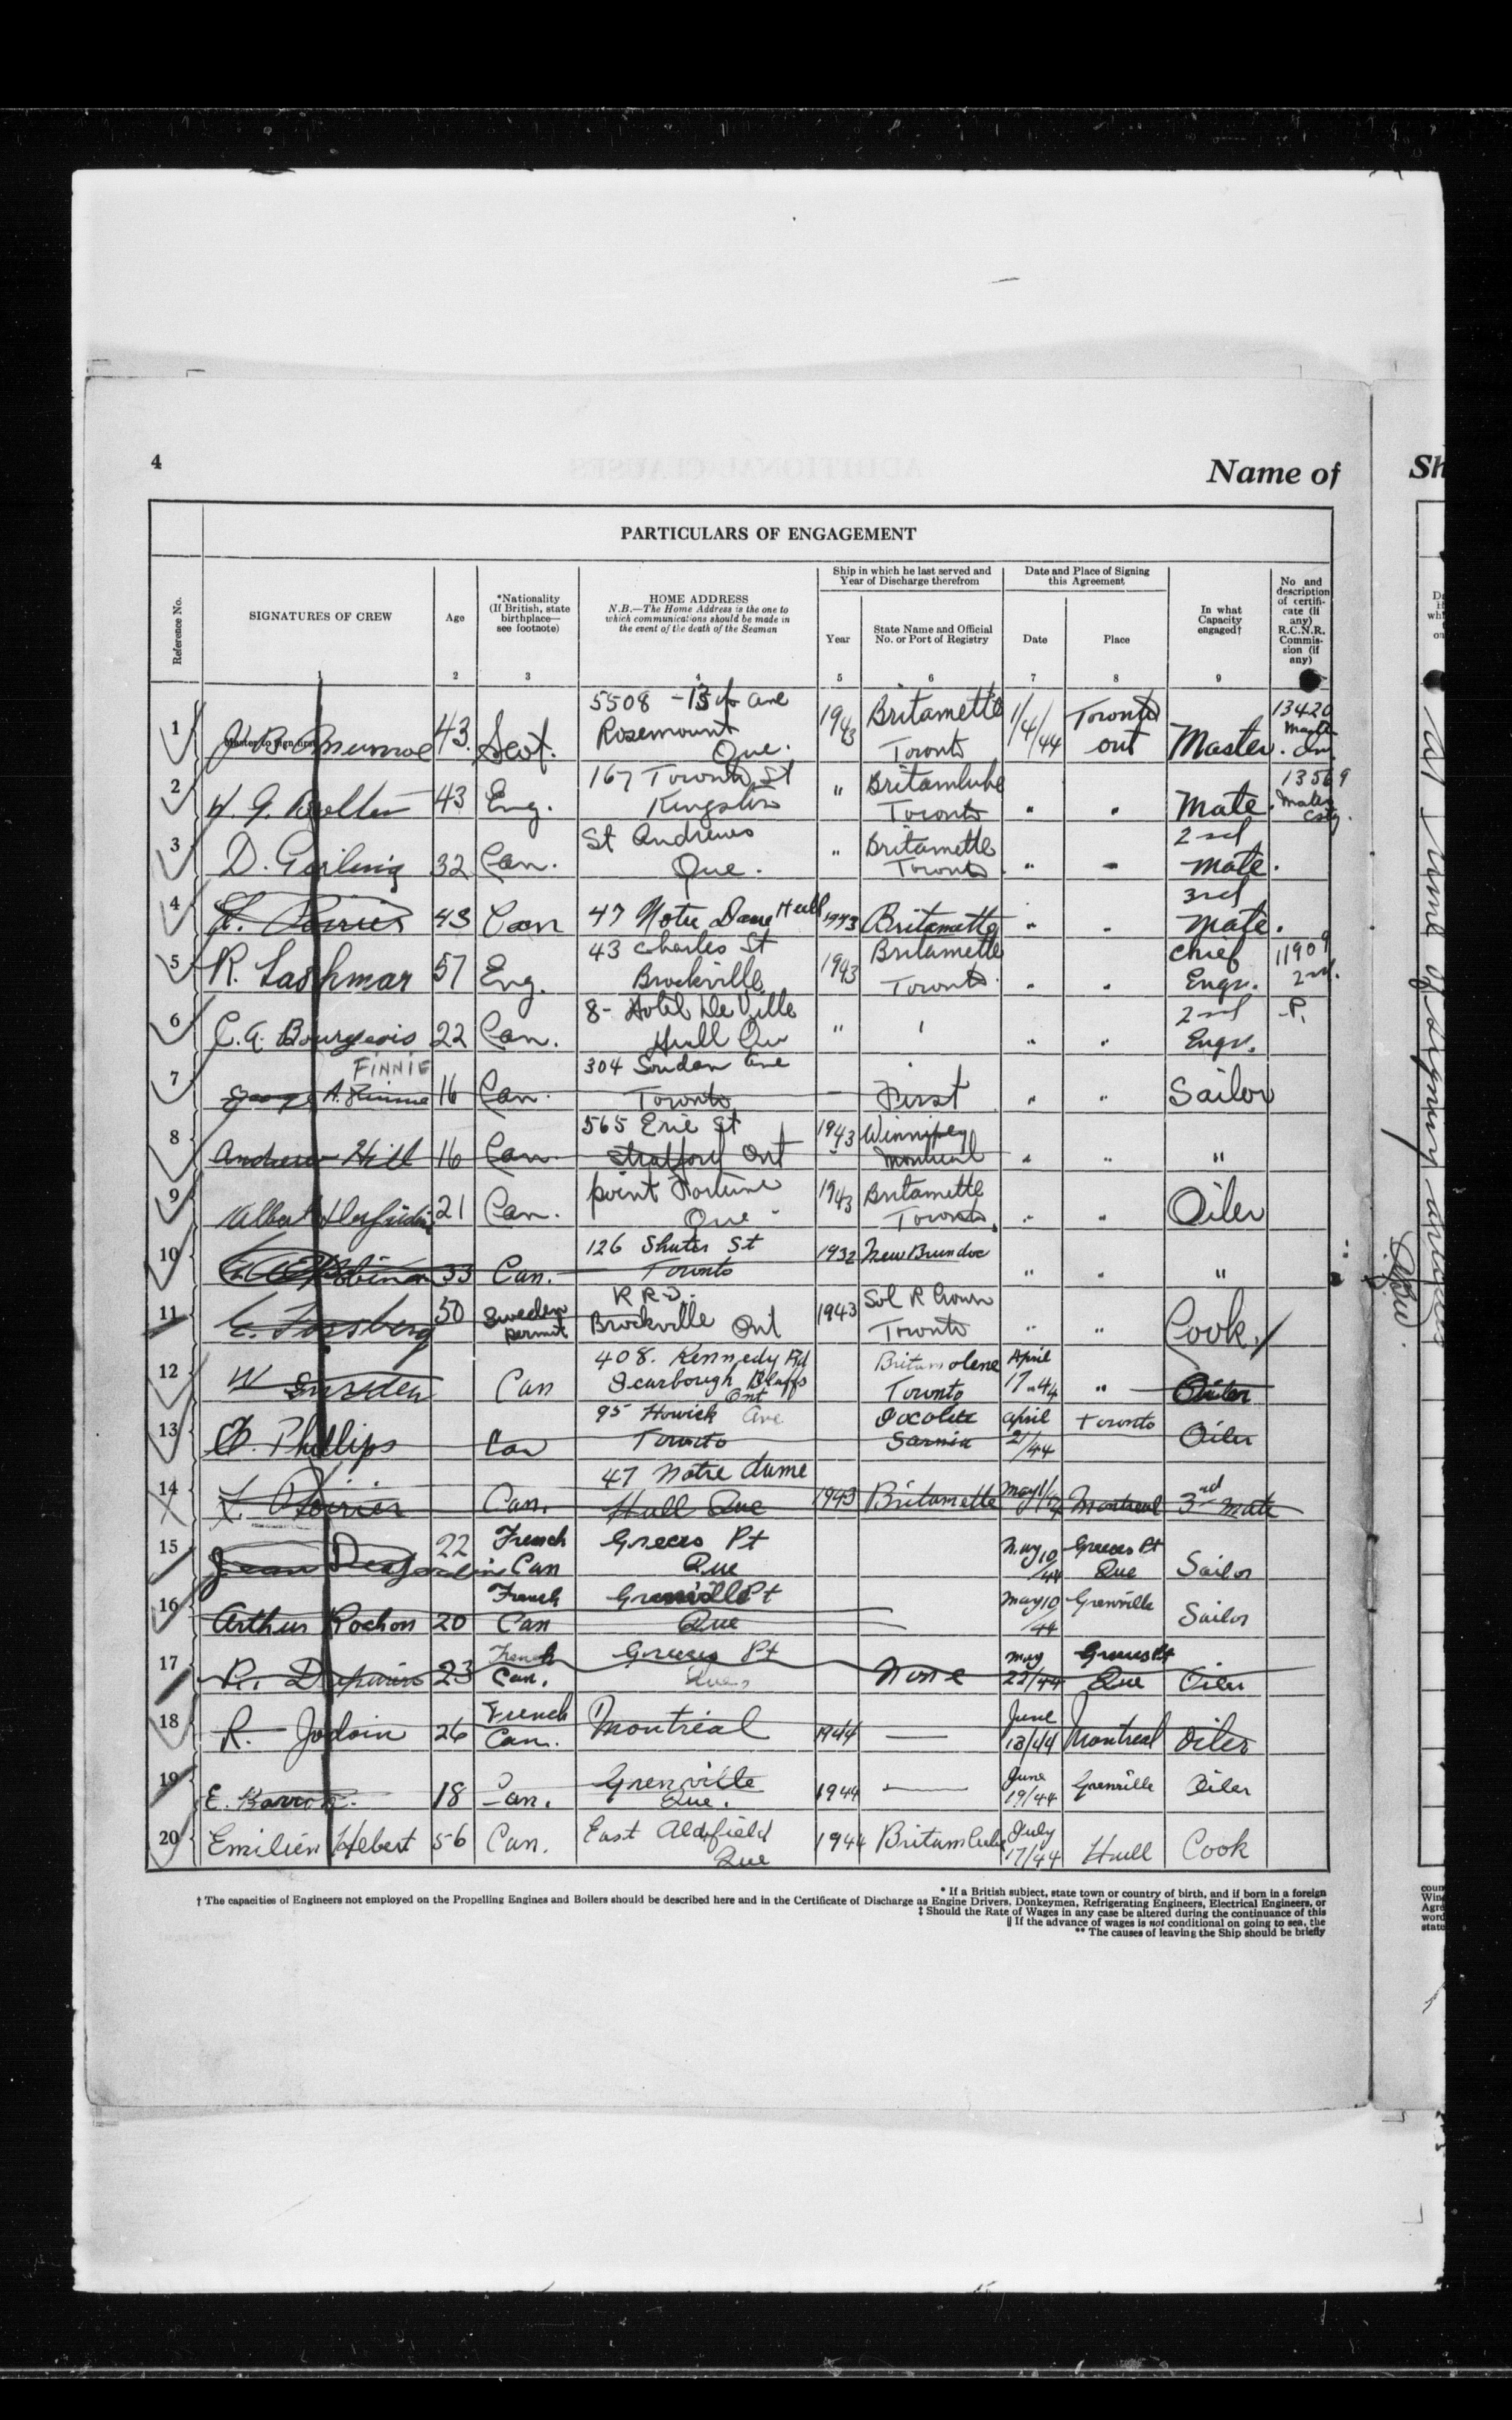 4
Name of
Sh
PARTICULARS OF ENGAGEMENT
Reference No.
SIGNATURES OF CREW
Age
*Nationality
(If British, state
birthplace—
see footnote)
HOME ADDRESS
N.B.—The Home Address is the one to
which communications should be made in
the event of the death of the Seaman
Ship in which he last served and
Year of Discharge therefrom
Year
State Name and Official
No. or Port of Registry
Date and Place of Signing
this Agreement
Date
Place
In what
Capacity
engaged†
No and
description
of certifi-
cate (if
any)
R.C.N.R.
Commis-
sion (if
any)
1 2 3 4 5 6 7 8 9
1 J. B. Munroe 43. Scot. 5508 - 13th Ave Rosemount Que. 1943 Britamette Toronto 1/4/44 Toronto Ont Master. 13420 Master
2 W. G. Bolton 43 Eng. 167 Toronto St Kingston " Britamlube Toronto " " Mate. 13569 Mates
3 D. Garling 32 Can. St Andrews Que. " Britamette Toronto " " 2nd Mate.
4 L. Poirier 43 Can 47 Notre Dame Hull 1943 Britamette " " 3rd Mate.
5 R. Lashmar 57 Eng. 43 Charles St Brockville 1943 Britamette Toronto " " Chief Engr. 11909 2nd.
6 C. A. Bourgeois 22 Can. 8- Hotel De Ville Hull Qu " " " 2nd Engr.
7 FINNIE George A. Finnie 16 Can. 304 Soudan Ave Toronto — First " " Sailor
8 Andrew Hill 16 Can. 565 Erie St Stratford Ont 1943 Winnipeg Montreal " " "
9 Albert 21 Can. Point Fortune Que 1943 Britamette Toronto. " " Oiler
10 Robinson 33 Can. 126 Shuter St Toronto 1932 New Brundoc " " "
11 E. Forsberg 50 Sweden permit R R Brockville Ont 1943 Toronto " " Cook.
12 W Can 408. Kennedy Rd Scarborough Bluffs Ont Britamolene Toronto April 17-44 " Oiler
13 Phillips Can 95 Howick Ave Toronto Sarnia April 21/44 Toronto Oiler
14 L. Poirier Can. 47 Notre Dame Hull Que 1943 Britamette May Montreal 3rd Mate
15 Jean Desjardins 22 French Can Greeces Pt Que May 10/44 Greeces Pt Que Sailor
16 Arthur Rochon 20 French Can Grenville Pt Que — May 10/44 Grenville Sailor
17 R. 23 French Can. Greeces Pt Que, None May 22/44 Greeces Pt Que Oiler
18 R. Jodoin 26 French Can. Montréal 1944 — June 13/44 Montreal Oiler
19 E. 18 Can. Grenville Que. 1944 — June 19/44 Grenville Oiler
20 Emilien Hebert 56 Can. East Aldfield Que 1944 Britamlube July 17/44 Hull Cook
* If a British subject, state town or country of birth, and if born in a foreign
† The capacities of Engineers not employed on the Propelling Engines and Boilers should be described here and in the Certificate of Discharge as Engine Drivers, Donkeymen, Refrigerating Engineers, Electrical Engineers, or
‡ Should the Rate of Wages in any case be altered during the continuance of this
|| If the advance of wages is not conditional on going to sea, the
** The causes of leaving the Ship should be briefly